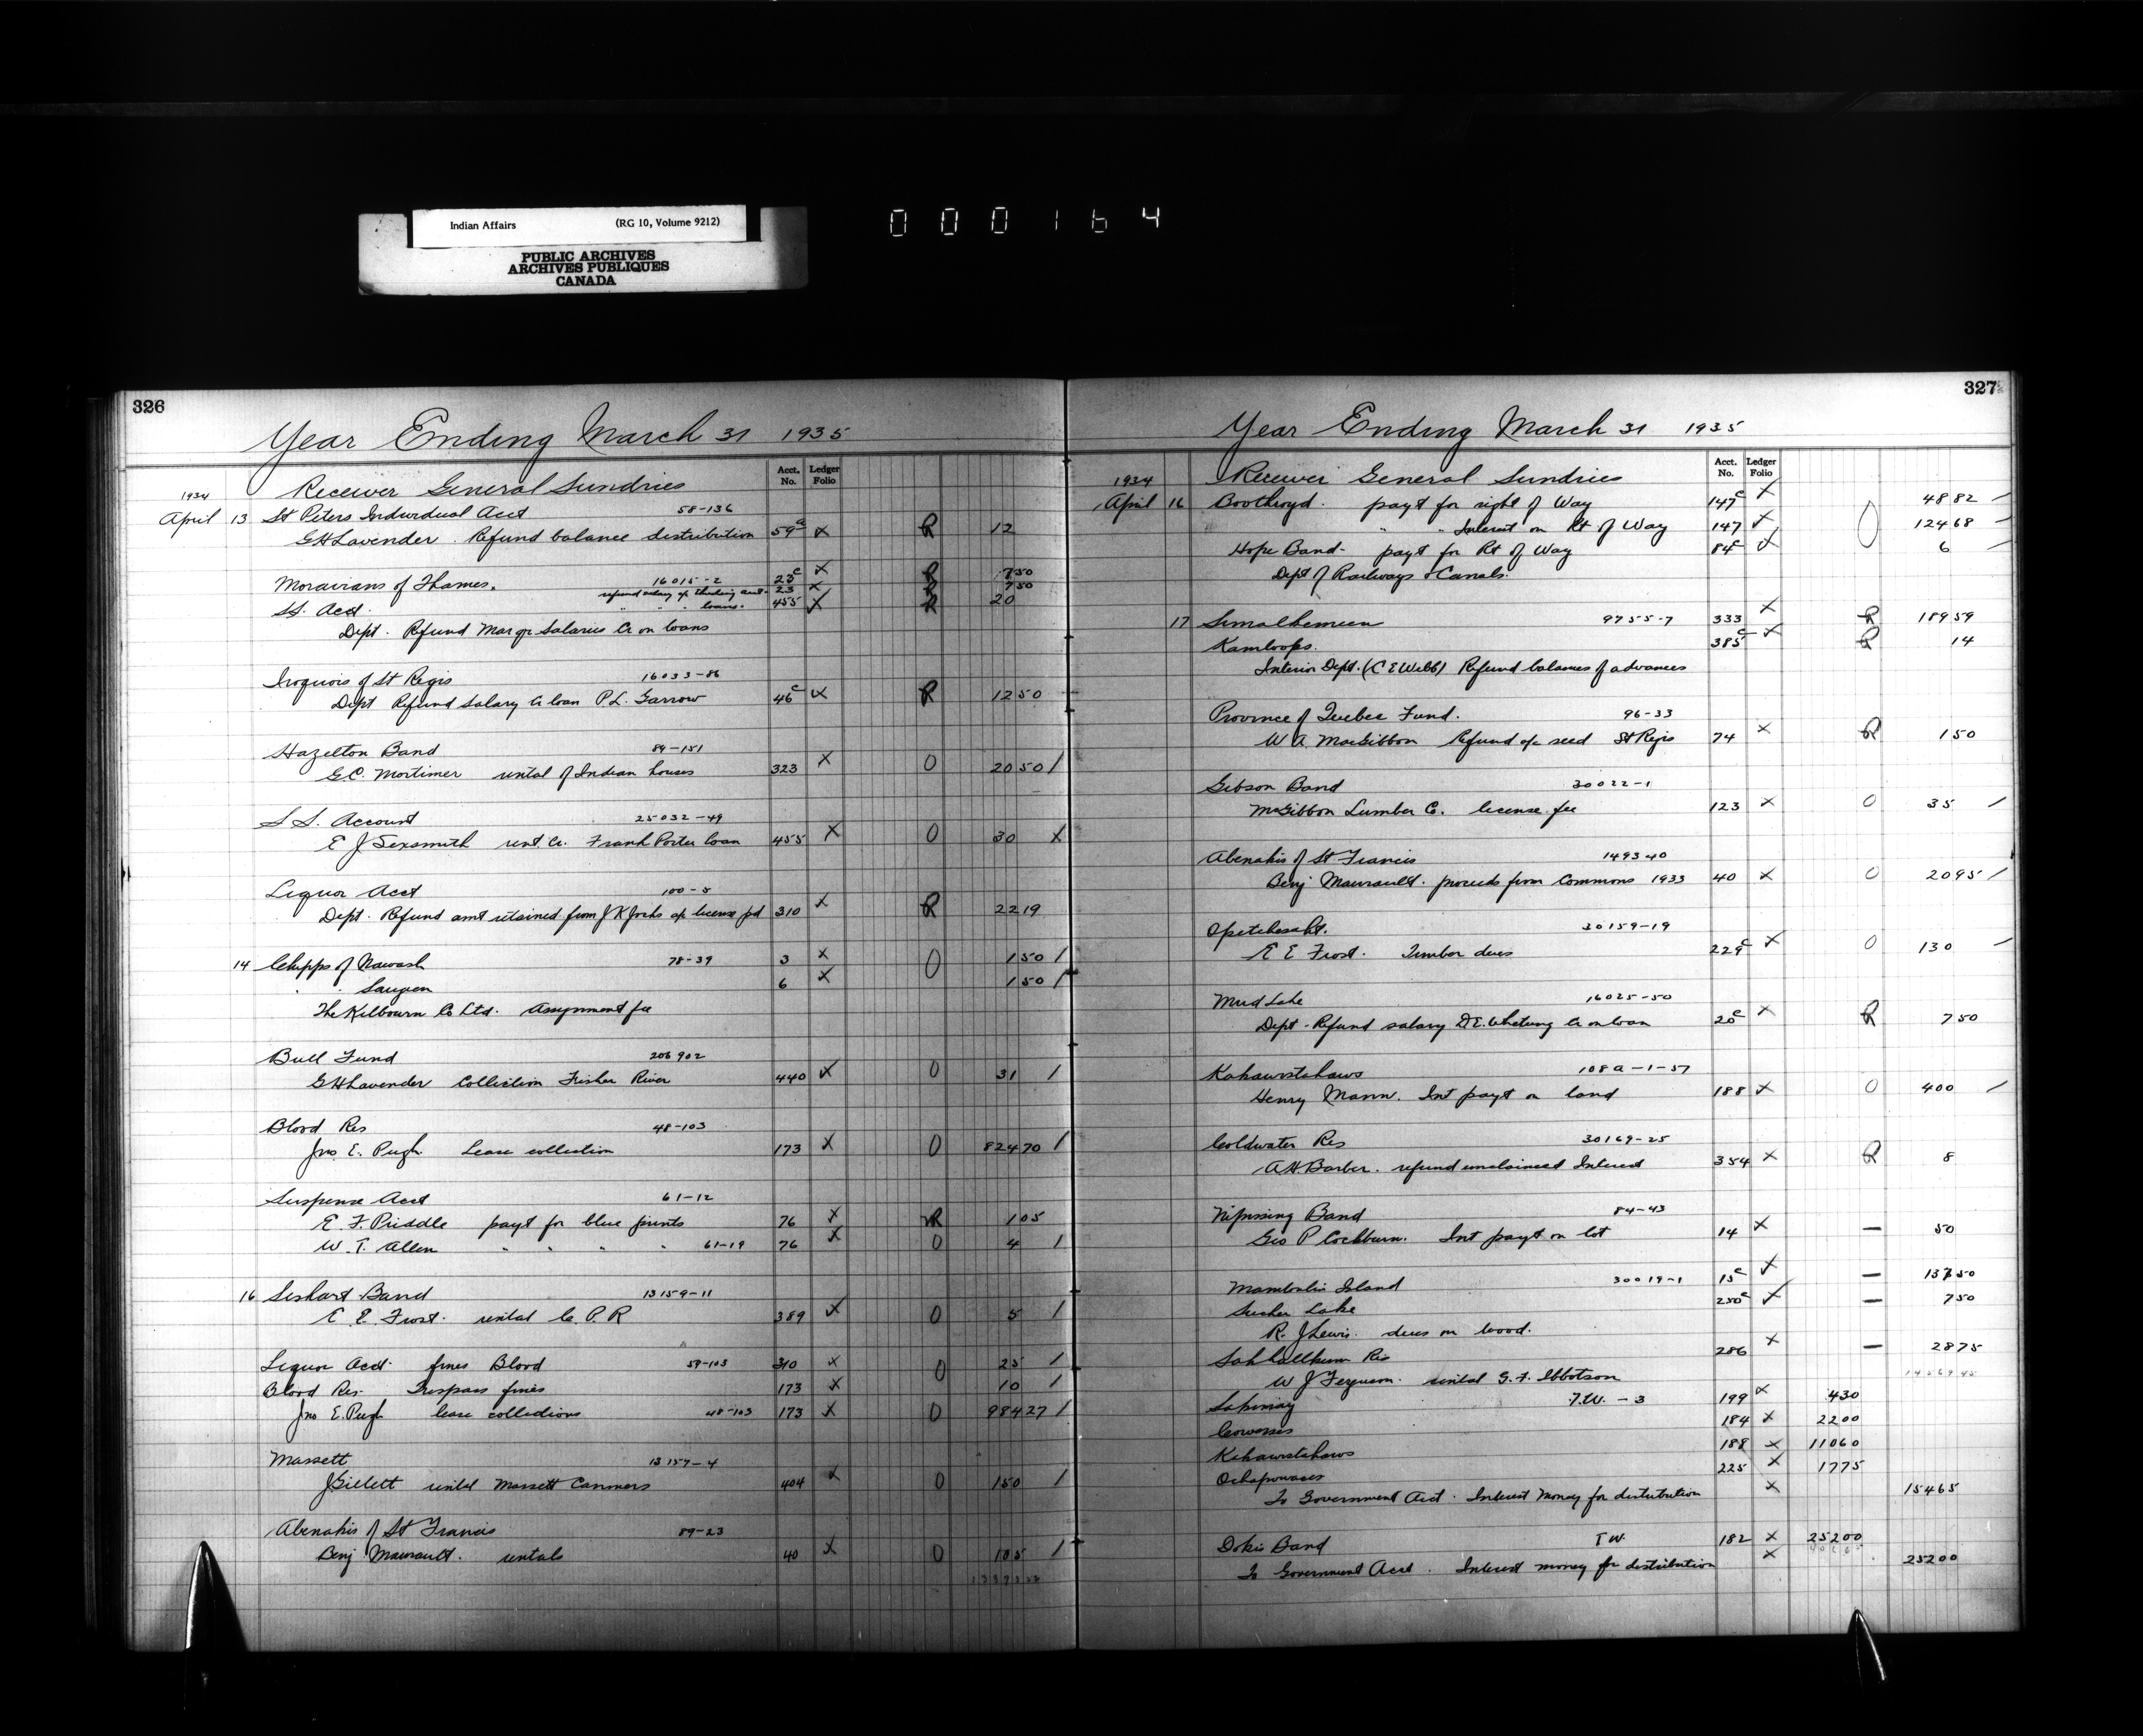 Indian Affairs (RG 10, Volume 9212)
PUBLIC ARCHIVES
ARCHIVES PUBLIQUES
CANADA
000164
326
Year Ending March 31 1935
Acct. No. Ledger Folio
1934 Receiver General Sundries
April 13 St Peters Individual Acct 58-136
G H Lavender. Refund balance distribution 59c x R 12
Moravians of Thames. 16015-2 23c x R 750
refund salary a/c 23 x R 750
St. Acct. " " " loans. 455 x R 20
Dept. Refund Mar qr Salaries Cr on loans
Iroquois of St Regis 16033-86
Dept Refund Salary Cr loan P.L. Garrow 46c x R 1250
Hazelton Band 89-151
G.C. Mortimer rental of Indian houses 323 x 0 2050 /
S S. Account 25032-49
E J Sexsmith rent Cr. Frank Porter loan 455 x 0 30 x
Liquor Acct 100-5
Dept. Refund amt retained from J K a/c license pd 310 x R 2219
14 Chipps of Nawash 78-39 3 x 0 150 /
" " Saugeen 6 x 150 /
The Kilbourn Co Ltd. Assignment fee
Bull Fund 206902
G H Lavender Collection Fisher River 440 x 0 31 /
Blood Res 48-103
Jno. E. Pugh. Lease collection 173 x 0 82470 /
Suspense Acct 61-12
E. F. Priddle payt for blue prints 76 x R 105
W. T. Allen " " " " 61-19 76 x 0 4 /
16 Seshart Band 13159-11
E. E. Frost. rental C. P. R 389 x 0 5 /
Liquor Acct. fines Blood 59-103 310 x 0 25 /
Blood Res. Trespass fines 173 x 10 /
Jno E. Pugh lease collections 48-103 173 x 0 98427 /
Massett 13157-4
J Gillett rental Massett Canners 404 x 0 150 /
Abenakis of St Francis 89-23
Benj Maurault. rentals 40 x 0 105 /
327
Year Ending March 31 1935
Acct. No. Ledger Folio
1934 Receiver General Sundries
April 16 Boothroyd. payt for right of Way 147c x 4882
" " Interest on Rt of Way 147 x 0 12468
Hope Band - payt for Rt of Way 84c x 6
Dept of Railways & Canals.
17 Similkameen 9755-7 333 x R 18959
Kamloops. 385c x R 14
Interior Dept. (C E Webb) Refund balances of advances
Province of Quebec Fund. 96-33
W A MacGibbon Refund a/c seed St Regis 74 x R 150
Gibson Band 30022-1
McGibbon Lumber Co. license fee 123 x 0 35 /
Abenakis of St Francis 149340
Benj Maurault. proceeds from Commons 1933 40 x 0 2095 /
Opetchesaht. 30159-19
E E Frost. Timber dues 229c x 0 130
Mud Lake 16025-50
Dept - Refund salary D.E. Whetung Cr on loan 20c x R 750
Kahawistahaws 108a-1-57
Henry Mann. Int payt on land 188 x 0 400 /
Coldwater Res 30169-25
A.H. Barber. refund unclaimed Interest 354 x R 8
Nipissing Band 84-43
Geo P Cockburn. Int payt on lot 14 x — 50
Manitoulin Island 30019-1 15c x — 13750
Sucker Lake 250c x — 750
R. J Lewis. dues on wood.
Sahhaltkum Res 286 x — 2875
W J Ferguson. rental G. F. Ibbotson
1456945
Sakimay T.W. - 3 199 x 430
Cowesses 184 x 2200
Kahawistahaws 188 x 11060
Ochapowaces 225 x 1775
To Government Acct. Interest Money for distribution x 15465
Dokis Band T W. 182 x 25200
To Government Acct. Interest money for distribution x 25200